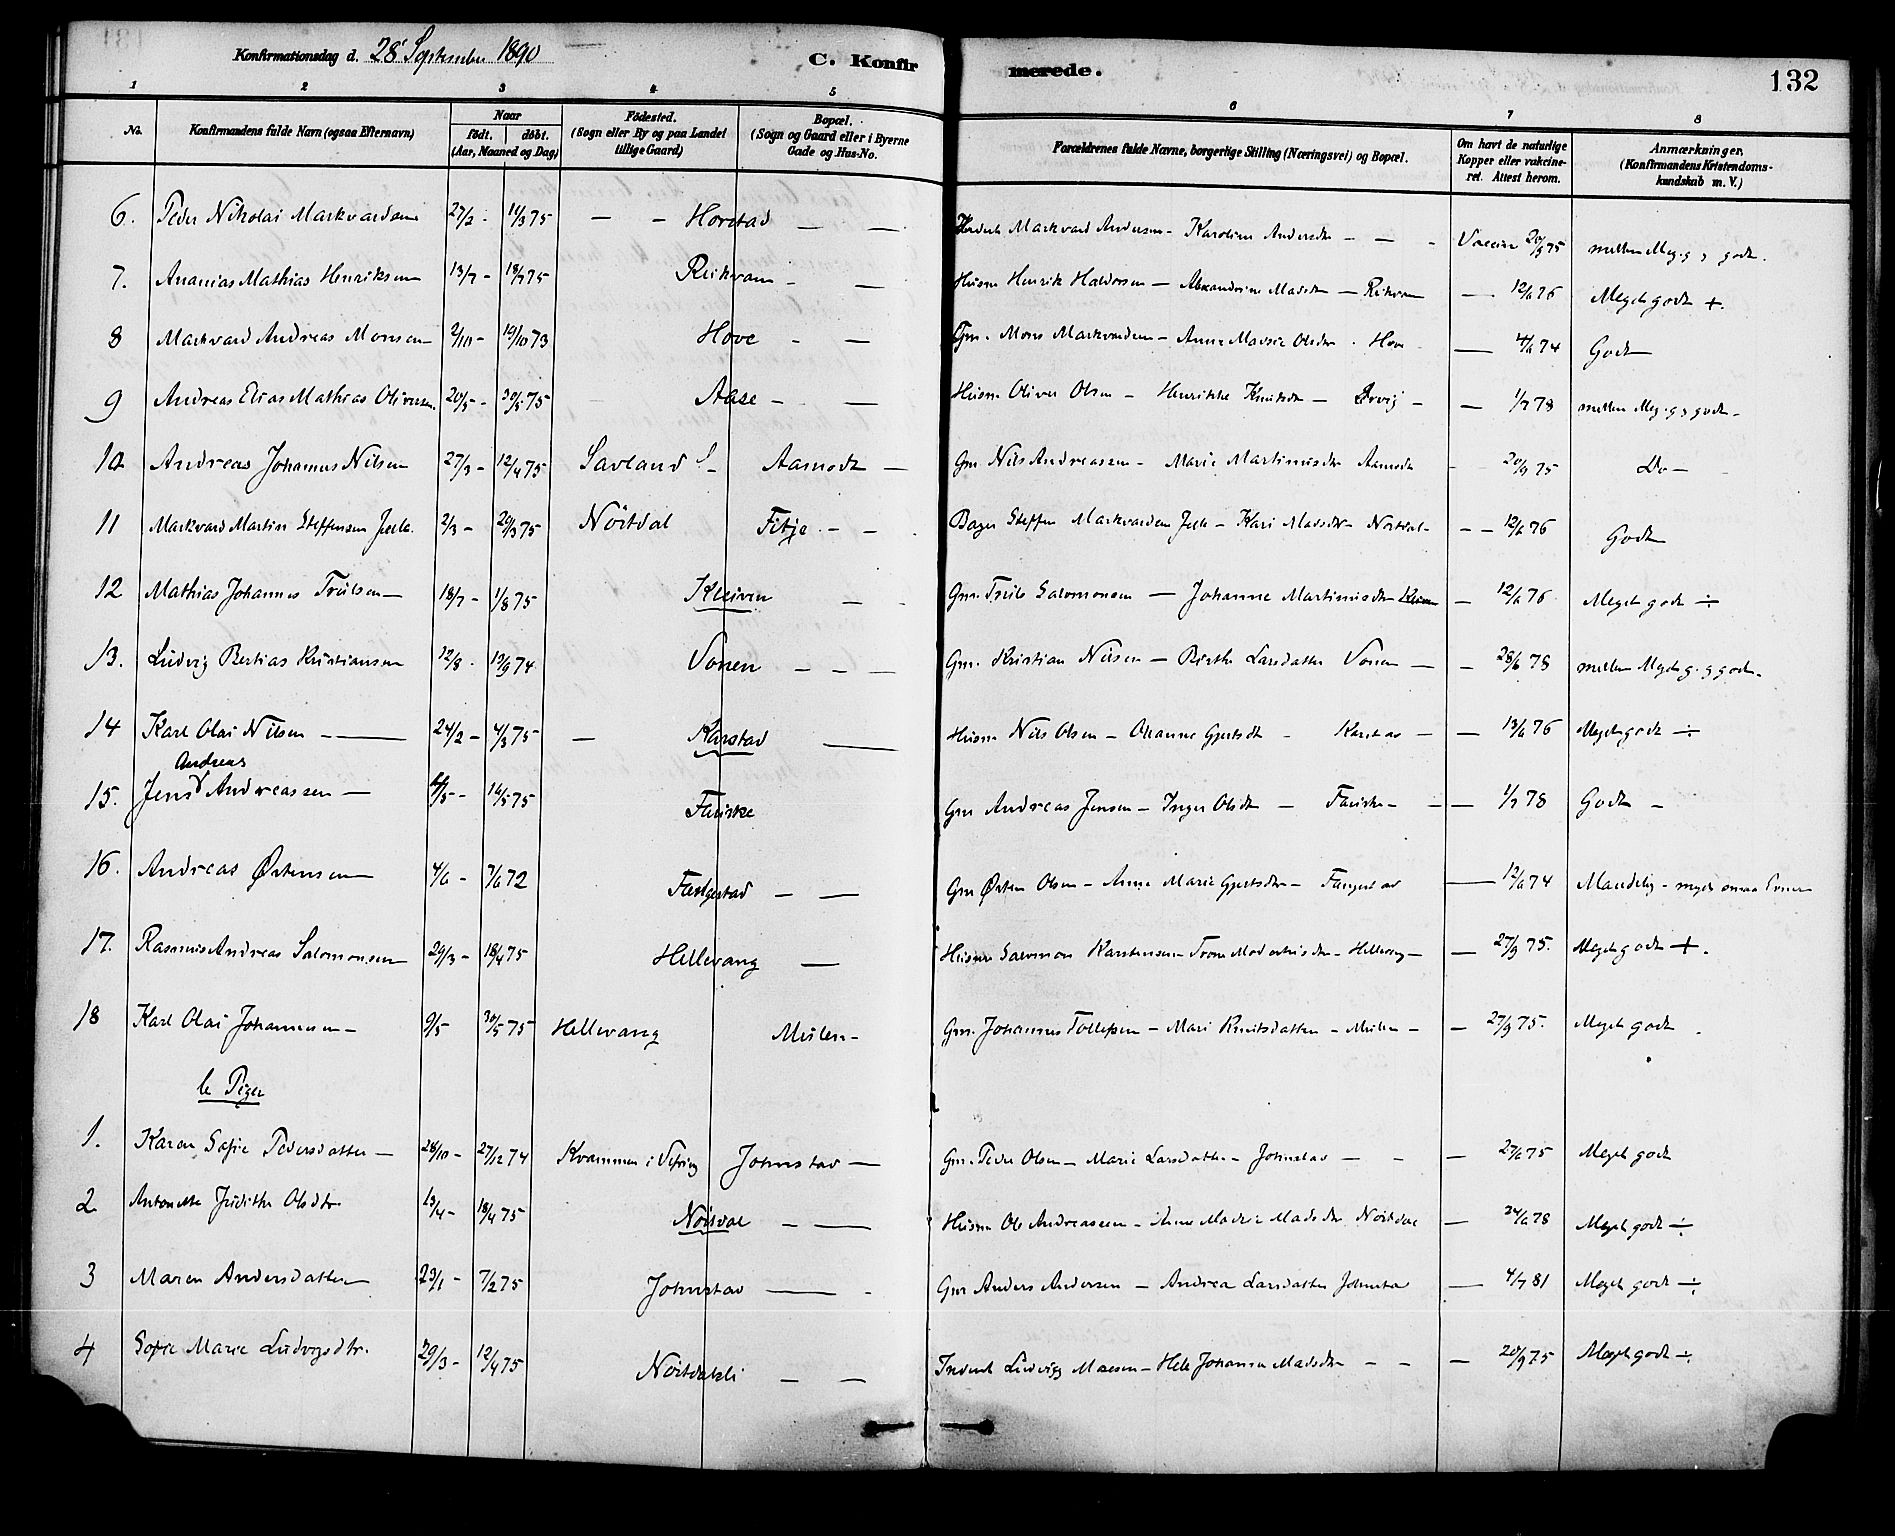 Konfirmationsdag d. 28' September 1890
C. Konfirmerede.
132
1 2 3 4 5 6 7 8
No.
Konfirmandens fulde Navn (ogsaa Efternavn)
Naar
födt. döbt.
(Aar, Maaned og Dag)
Födested.
(Sogn eller By og paa Landet
tillige Gaard)
Bopæl.
(Sogn og Gaard eller i Byerne
Gade og Hus-No.
Forældrenes fulde Navne, borgerlige Stilling (Næringsvei) og Bopæl.
Om havt de naturlige
Kopper eller vakcine-
ret. Attest herom.
Anmærkninger,
(Konfirmandens Kristendoms-
kundskab m. V.)
6. Peder Nikolai Markvardsen 27/2 - 11/3 75 — — Horstad — — Markvard Andersen - Karoline Andersdtr — — - Vaccine 20/9 75 mellem Meg. g. og godt.
7. Ananias Mathias Henriksen 13/7 - 18/7 75 Reikvam - — Husm Henrik Haldorsen — Alexandrine Madsdtr — Reikvam — 12/6 76 Meget godt +.
8 Markvard Andreas Monsen 2/10 - 19/10 73 Hove - — Gm. Mons Markvardsen - Anne Marie Olsdtr - Hove — 4/6 74 Godt
9 Andreas Elias Mathias Oliversen 20/5 - 30/5 75 Aase - — Husm Oliver Olsen — Henrikke Knutsdtr — — 1/7 78 mellem Meg. g. og godt -
10 Andreas Johannes Nilsen 27/3 - 12/4 75 Savland Aamodt — Gm Nils Andreassen - Marie Martinusdtr Aamodt - 20/9 75 Do -
11 Markvard Martin Steffensen 2/3 - 29/3 75 Nöitdal Fitje - - Steffen Markvardsen - Kari Madsdtr - Nöitdal - - 12/6 76 Godt
12 Mathias Johannes Trulsen — 18/7 - 1/8 75 Kleiven — - Gm. Truls Salomonsen — Johanne Martinusdtr Kleiven — 12/6 76 Meget godt ÷
13. Ludvig Bertias Kristiansen 12/8 - 13/9 74 Vonen - - — Gm. Kristian Nilsen — Birthe Larsdatter Vonen — - 28/6 78 mellem Meget g. og godt.
14 Karl Olai Nilsen - — 24/2 - 4/3 75 — Karstad — Husm Nils Olsen - Oleanne Gjertsdtr - Karstad — — 13/6 76 Meget godt ÷
Andreas
15. Jens Andreassen — 4/5 - 16/5 75 Fauske Gm Andreas Jensen - Inger Olsdtr — Fauske - — 1/7 78 Godt -
16. Andreas Östensen 4/6 - 9/6 72 Fargestad - — Gm Östen Olsen - Anne Marie Gjertsdtr - Fargestad — 12/6 74 Maadelig - meget smaa Evner
17. Rasmus Andreas Salomonsen 29/3 - 18/4 75 Hellevang — Husm Salomon Karstensen - Hellevang — — 27/9 75. Meget godt +.
18 Karl Olai Johannesen - 9/5 30/5 75 Hellevang Muslen - Gm. Johannes Tollefsen - Mari Knutsdatter - Muslen - - 27/9 75. Meget godt
b Piger
1. Karen Sofie Pedersdatter — 28/10 - 27/12 74 Kvammen i Vefring Johnstad — Gm. Peder Olsen - Marie Larsdatter - Johnstad — - — 27/6 75 Meget godt
2 Antonette Judithe Olsdtr 13/4 - 18/4 75 Nöitdal - — Husm Ole Andreassen - Anne Marie Madsdtr Nöitdal — 24/6 78 Meget godt ÷
3 Maren Andersdatter 23/1 - 7/2 75 Johnstad — - Gm Anders Andersen — Andrea Larsdatter Johnstad — 4/7 81 Meget godt ÷
4 Sofie Marie Ludvigsdtr. 29/3 - 12/4 75 Nöitdalsli — — Inderst Ludvig - Johanne Madsdtr - - — 20/9 75 Meget godt ÷.